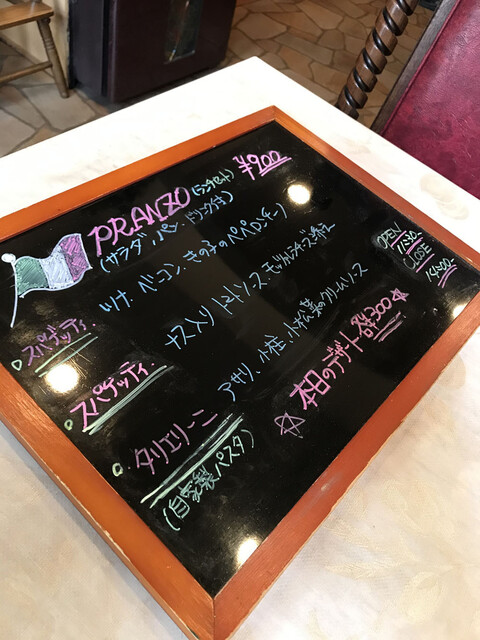 PRANZO (ランチセット) ¥900
(サラダ、パン、ドリンク付)
スパゲッティ ツナ、ベーコン、きの子のペペロンチーノ
スパゲッティ ナス入りトマトソース、モッツァレラチーズ
タリエリーニ アサリ、小柱、小松菜のクリームソース
(自家製パスタ)
☆ 本日のデザート ¥300 ☆
OPEN
11:30-
CLOSE